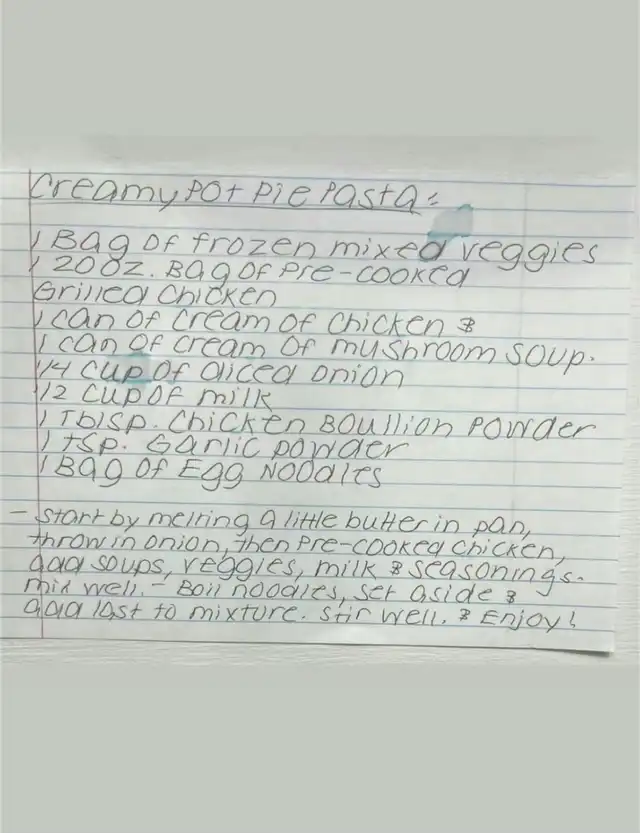 Creamy Pot Pie Pasta:
1 Bag of frozen mixed veggies
1 20oz. Bag of Pre-cooked
Grilled Chicken
1 can of cream of chicken &
1 can of cream of mushroom soup.
1/4 cup of diced onion
1/2 cup of milk
1 Tblsp. Chicken Boullion Powder
1 tsp. Garlic powder
1 Bag of Egg Noodles
- Start by melting a little butter in pan,
throw in onion, then pre-cooked chicken,
add soups, veggies, milk & seasonings.
mix well. - Boil noodles, set aside &
add last to mixture. Stir well. & Enjoy!